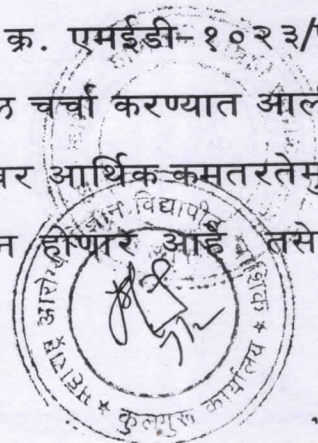 क्र. एमईडी-१०२३/
चर्चा करण्यात आल
आर्थिक कमतरतेमु
होणार आहे तसे
महाराष्ट्र आरोग्य विज्ञान विद्यापीठ नाशिक
* कुलगुरू कार्यालय *